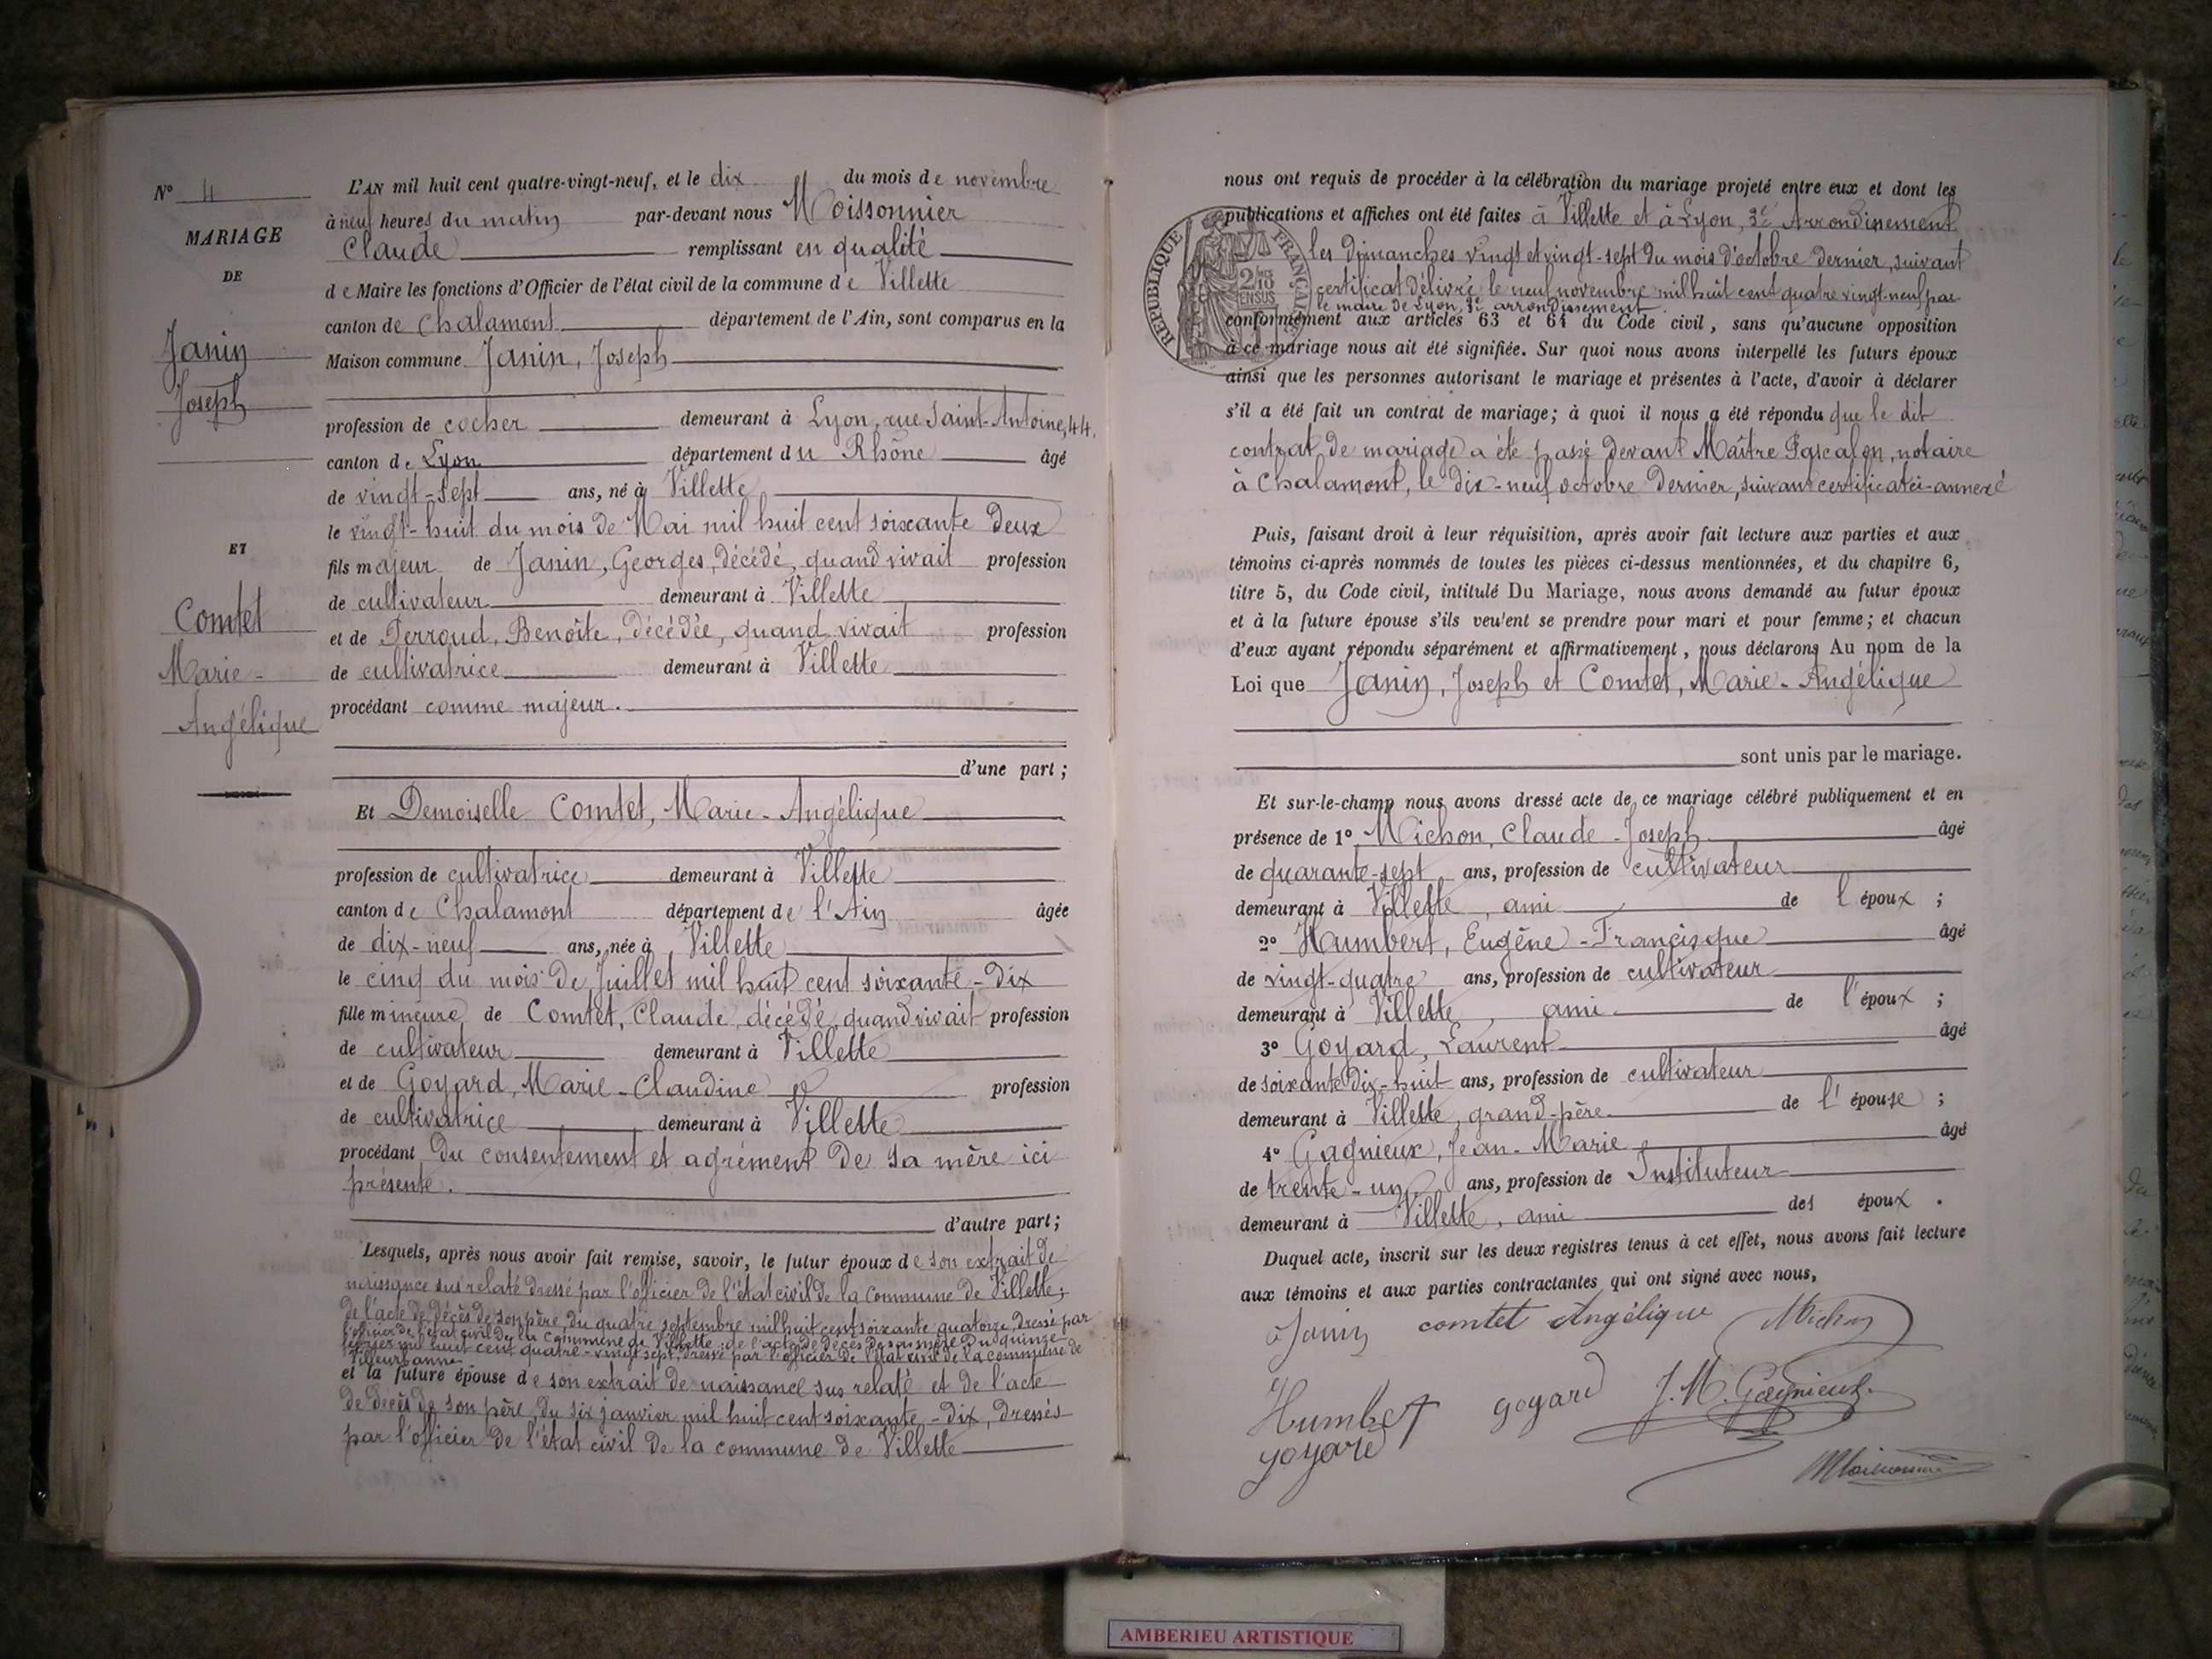 N° 4
MARIAGE
DE
Janin
Joseph
ET
Comtet
Marie-
Angélique
L'AN mil huit cent quatre-vingt-neuf, et le dix du mois de novembre
à neuf heures du matin par-devant nous Moissonnier
Claude remplissant en qualité
de Maire les fonctions d'Officier de l'état civil de la commune de Villette
canton de Chalamont département de l'Ain, sont comparus en la
Maison commune Janin, Joseph
profession de cocher demeurant à Lyon, rue Saint-Antoine, 44,
canton de Lyon département du Rhône âgé
de vingt-sept ans, né à Villette
le vingt-huit du mois de Mai mil huit cent soixante deux
fils majeur de Janin, Georges, décédé, quand vivait profession
de cultivateur demeurant à Villette
et de Perroud, Benoîte, décédée, quand vivait profession
de cultivatrice demeurant à Villette
procédant comme majeur.
d'une part ;
Et Demoiselle Comtet, Marie-Angélique
profession de cultivatrice demeurant à Villette
canton de Chalamont département de l'Ain âgée
de dix-neuf ans, née à Villette
le cinq du mois de Juillet mil huit cent soixante-dix
fille mineure de Comtet, Claude, décédé, quand vivait profession
de cultivateur demeurant à Villette
et de Goyard, Marie-Claudine profession
de cultivatrice demeurant à Villette
procédant du consentement et agrément de sa mère ici
présente.
d'autre part ;
Lesquels, après nous avoir fait remise, savoir, le futur époux de son extrait de
naissance sus relaté dressé par l'officier de l'état civil de la Commune de Villette ;
de l'acte de décès de son père, du quatre septembre mil huit cent soixante quatorze, dressé par
l'officier de l'état civil de la commune de Villette ; de l'acte de décès de sa mère du quinze
février mil huit cent quatre-vingt sept, dressé par l'officier de l'état civil de la commune de
Villeurbanne
et la future épouse de son extrait de naissance sus relaté et de l'acte
de décès de son père, du six janvier mil huit cent soixante-dix, dressés
par l'officier de l'état civil de la commune de Villette
nous ont requis de procéder à la célébration du mariage projeté entre eux et dont les
publications et affiches ont été faites à Villette et à Lyon, 3e Arrondissement
les dimanches vingt et vingt-sept du mois d'octobre dernier, suivant
certificat délivré le neuf novembre mil huit cent quatre vingt-neuf par
le maire de Lyon, 3e arrondissement.
conformément aux articles 63 et 64 du Code civil, sans qu'aucune opposition
à ce mariage nous ait été signifiée. Sur quoi nous avons interpellé les futurs époux
ainsi que les personnes autorisant le mariage et présentes à l'acte, d'avoir à déclarer
s'il a été fait un contrat de mariage ; à quoi il nous a été répondu que le dit
contrat de mariage a été passé devant Maître Pascalon, notaire
à Chalamont, le dix-neuf octobre dernier, suivant certificat ci-annexé
RÉPUBLIQUE FRANÇAISE
2/10 EN SUS
Puis, faisant droit à leur réquisition, après avoir fait lecture aux parties et aux
témoins ci-après nommés de toutes les pièces ci-dessus mentionnées, et du chapitre 6,
titre 5, du Code civil, intitulé Du Mariage, nous avons demandé au futur époux
et à la future épouse s'ils veu'ent se prendre pour mari et pour femme ; et chacun
d'eux ayant répondu séparément et affirmativement, nous déclarons Au nom de la
Loi que Janin, Joseph et Comtet, Marie-Angélique
sont unis par le mariage.
Et sur-le-champ nous avons dressé acte de ce mariage célébré publiquement et en
présence de 1° Michon, Claude-Joseph âgé
de quarante-sept ans, profession de cultivateur
demeurant à Villette, ami de l'époux ;
2° Humbert, Eugène-Francisque âgé
de vingt-quatre ans, profession de cultivateur
demeurant à Villette, ami de l'époux ;
3° Goyard, Laurent âgé
de soixante dix-huit ans, profession de cultivateur
demeurant à Villette, grand-père de l'épouse ;
4° Gagnieux, Jean-Marie âgé
de trente-un ans, profession de Instituteur
demeurant à Villette, ami des époux.
Duquel acte, inscrit sur les deux registres tenus à cet effet, nous avons fait lecture
aux témoins et aux parties contractantes qui ont signé avec nous,
Janin comtet Angélique Michon
Humbert goyard J. M. Gagnieux
goyard
Moissonnier
AMBERIEU ARTISTIQUE